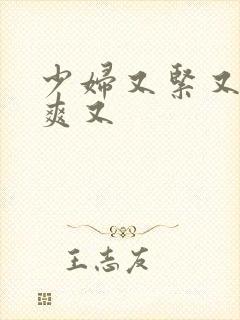 少婦又緊又
爽又
王志友